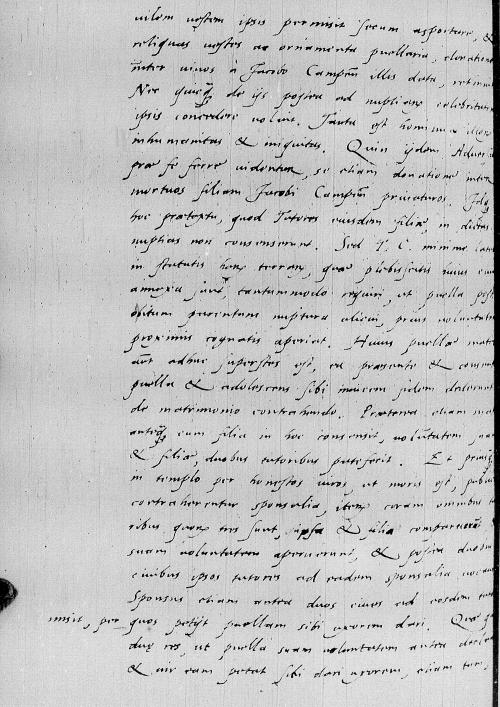 uilem uestem ipsis permisit secum asportare, &
reliquas uestes ac ornamenta puellaria, donatione
inter uiuos à Jacobo Campen illis data, retinuit
Nec quicq de ijs postea ad nuptiarum celebritatem
ipsis concedere uoluit. Tanta est hominum illorum
inhumanitas & iniquitas. Quin ijdem Aduersarij
prae se ferre uidentur, se etiam donatione inter
mortuos filiam Jacobi Campen priuaturos. Idq
hoc praetextu, quod Tutores eiusdem filiae, in dictas
nuptias non consenserunt. Sed T. C. minime latet
in statutis harum terrarum, quae plebiscitis huius
annexa sunt, tantummodo requiri, ut puella post
obitum parentum nuptura alicui, prius uoluntatem
proximis cognatis aperiat. Huius puellae mater
aut adhuc superstes est, ea praesente &
puella & adolescens sibi inuicem fidem dederunt
de matrimonio contrahendo. Praeterea etiam mater
anteq cum filia in hoc consensit, uoluntatem suam
& filiae, duobus tutoribus patefecit. Et
in templo per honestos uiros, ut moris est,
contraherentur sponsalia, iterum coram omnibus
ribus quorum tres sunt, ipsa & filia comparuerunt
suam uoluntatem aperuerunt, & postea duobus
ciuibus ipsos tutores ad eadem sponsalia
Sponsus etiam antea duos ciues ad eosdem
misit, per quos petijt puellam sibi uxorem dari.
duae res, ut puella suam uoluntatem antea
& uir eam petat sibi dari uxorem, etiam